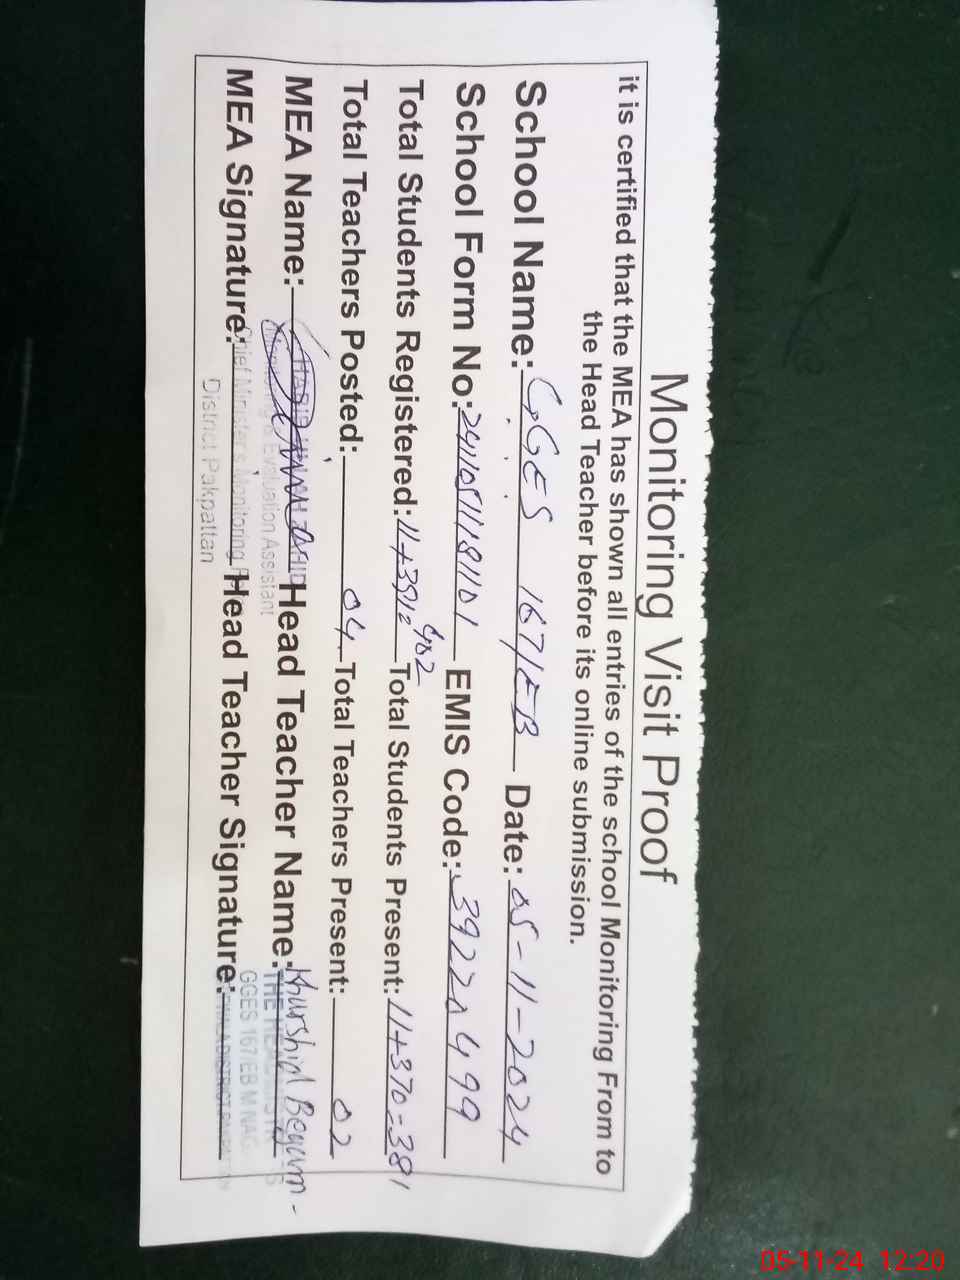 Monitoring Visit Proof
it is certified that the MEA has shown all entries of the school Monitoring From to
the Head Teacher before its online submission.
School Name: GGES 167/EB Date: 05-11-2024
School Form No: EMIS Code: 39220499
402
Total Students Registered: 11+391= Total Students Present: 11+370=381
Total Teachers Posted: 04 Total Teachers Present: 02
MEA Name: Head Teacher Name: Khurshid Begum
Monitoring & Evaluation Assistant
THE HEADMISTRESS
MEA Signature: Head Teacher Signature:
Chief Minister's Monitoring
GGES 167/EB
District Pakpattan
05-11-24 12:20